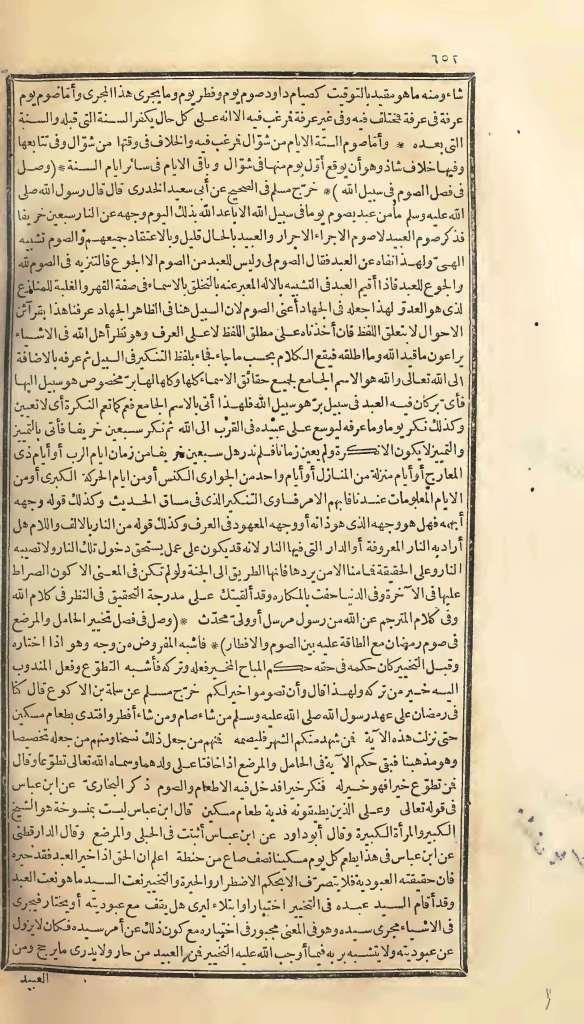 ٦٥٢
شاء ومنه ما هو مقيد بالتوقيت كصيام داود صوم يوم وفطر يوم وما يجرى هذا المجرى وأما صوم يوم
عرفة فى عرفة فمختلف فيه وفى غير عرفة فرغب فيه الا انه على كل حال يكفر السنة التى قبله والسنة
التى بعده * وأما صوم الستة الايام من شوّال فرغب فيه والخلاف فى وقتها من شوّال وفى تتابعها
وفيها خلاف شاذ وهو أن يوقع أوّل يوم منها فى شوّال وباقى الايام فى سائر ايام السنة * (وصل
فى فصل الصوم فى سبيل الله) * خرّج مسلم فى الصحيح عن أبى سعيد الخدرى قال قال رسول الله صلى
الله عليه وسلم ما من عبد يصوم يوما فى سبيل الله الا باعد الله بذلك اليوم وجهه عن النار سبعين خريفا
فذكر صوم العبيد لا صوم الاجراء الاحرار والعبيد بالحال قليل وبالاعتقاد جميعهم والصوم تشبيه
الهىّ ولهذا نفاه عن العبد فقال الصوم لى وليس للعبد من الصوم الا الجوع فالتنزيه فى الصوم لله
والجوع للعبد فاذا أقيم العبد فى التشبيه بالاله المعبر عنه بالتخلق بالاسماء فى صفة القهر والغلبة للمنازع
لذى هو العدوّ لهذا جعله فى الجهاد أعنى الصوم لان السبيل هنا فى الظاهر الجهاد عرفنا هذا بقرائن
الاحوال لا بتعلق اللفظ فان أخذناه على مطلق اللفظ لا على العرف وهو نظر أهل الله فى الاشياء
يراعون ما قيد الله وما اطلقه فيقع الكلام بحسب ما جاء فجاء بلفظ التنكير فى السبيل ثم عرفه بالاضافة
الى الله تعالى والله هو الاسم الجامع لجميع حقائق الاسماء كلها وكلها لها بر مخصوص هو سبيل اليها
فأىّ بر كان فيه العبد فى سبيل بر هو سبيل الله فلهذا أتى بالاسم الجامع فعم كما تعم النكرة أى لا تعيين
وكذلك نكر يوما وما عرفه ليوسع على عبيده فى القرب الى الله ثم نكر سبعين خريفا فأتى بالتمييز
والتمييز لا يكون الا نكرة ولم يعين زمانا فلم ندر هل سبعين خريفا من زمان ايام الرب أو أيام ذى
المعارج أو أيام منزلة من المنازل أو أيام واحد من الجوارى الكنس أو من ايام الحركة الكبرى أو من
الايام المعلومات عندنا فابهم الامر فساوى التنكير الذى فى مساق الحديث وكذلك قوله وجهه
أبهمه فهل هو وجهه الذى هو ذاته أو وجهه المعهود فى العرف وكذلك قوله من النار بالالف واللام هل
أراد به النار المعروفة أو الدار التى فيها النار لانه قد يكون على عمل يستحق دخول تلك النار ولا تصيبه
النار وعلى الحقيقة فما منا الا من يردها فانها الطريق الى الجنة ولو لم تكن فى المعنى الا كون الصراط
عليها فى الآخرة وفى الدنيا حفت بالمكاره وقد ألقيتك على مدرجة التحقيق فى النظر فى كلام الله
وفى كلام المترجم عن الله من رسول مرسل أو ولىّ محدّث * (وصل فى فصل تخيير الحامل والمرضع
فى صوم رمضان مع الطاقة عليه بين الصوم والافطار) * فاشبه المفروض من وجه وهو اذا اختاره
وقبل التخيير كان حكمه فى حقه حكم المباح المخير فعله وتركه فأشبه التطوّع وفعل المندوب
اليه خير من تركه ولهذا قال وأن تصوموا خير لكم خرّج مسلم عن سلمة بن الاكوع قال كنا
فى رمضان على عهد رسول الله صلى الله عليه وسلم من شاء صام ومن شاء أفطر وافتدى بطعام مسكين
حتى نزلت هذه الآية فمن شهد منكم الشهر فليصمه فمنهم من جعل ذلك نسخا ومنهم من جعله تخصيصا
وهو مذهبنا فبقى حكم الآية فى الحامل والمرضع اذا خافتا على ولدهما وسماه الله تعالى تطوّعا وقال
فمن تطوّع خيرا فهو خير له فنكر خيرا فدخل فيه الاطعام والصوم ذكر البخارىّ عن ابن عباس
فى قوله تعالى وعلى الذين يطيقونه فدية طعام مسكين قال ابن عباس ليست بمنسوخة هو الشيخ
الكبير والمرأة الكبيرة وقال أبو داود عن ابن عباس أثبتت فى الحبلى والمرضع وقال الدارقطنى
عن ابن عباس فى هذا يطعم كل يوم مسكينا نصف صاع من حنطة اعلم ان الحق اذا خير العبد فقد حيره
فان حقيقته العبودية فلا يتصرّف الا بحكم الاضطرار والحيرة والتخيير نعت السيد ما هو نعت العبد
وقد أقام السيد عبده فى التخيير اختبارا وابتلاء ليرى هل يقف مع عبوديته أو يختار فيجرى
فى الاشياء مجرى سيده وهو فى المعنى مجبور فى اختياره مع كون ذلك عن أمر سيده فكان لا يزول
عن عبوديته ولا يتشبه بربه فيما أوجب الله عليه التخيير فمن العبيد من حار ولا يدرى ما يرجح ومن
العبيد